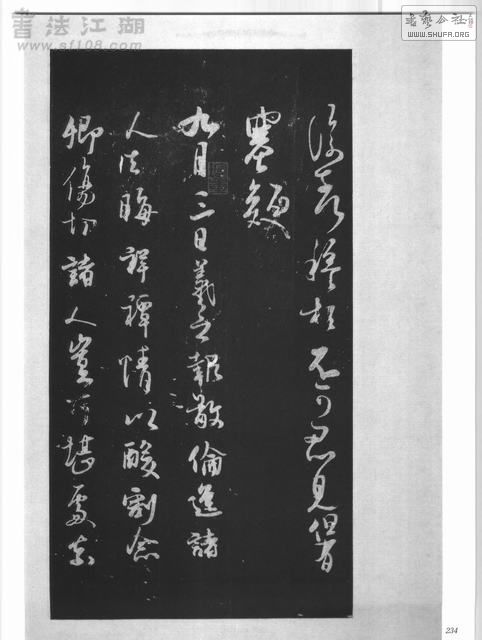 書法江湖
www.sf108.com
書藝公社
WWW.SHUFA.ORG
不可忍見但有
九月三日羲之報敬倫遮諸
人去晦祥禫情以酸割念
卿傷切諸人豈可堪處奈
234